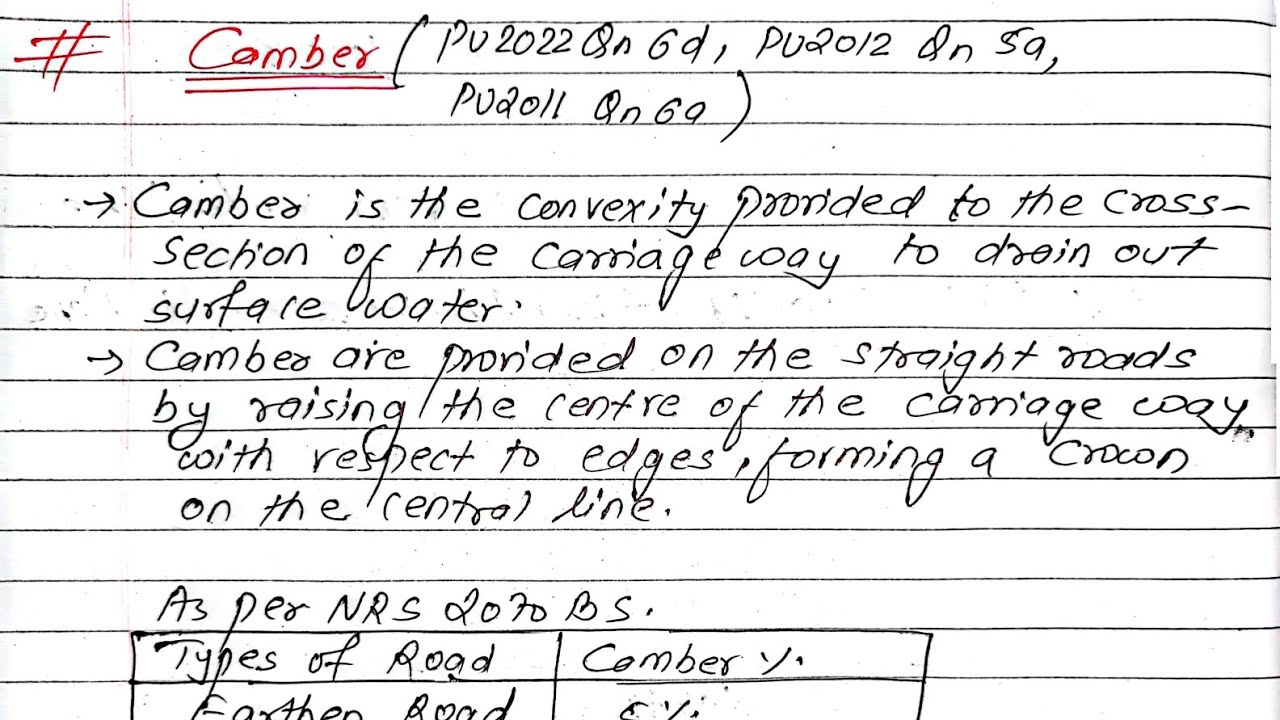 # Camber (PU2022 Qn 6d, PU2012 Qn 5a,
PU2011 Qn 6a)
→ Camber is the convexity provided to the cross-
section of the carriage way to drain out
surface water.
→ Camber are provided on the straight roads
by raising the centre of the carriage way
with respect to edges, forming a crown
on the central line.
As per NRS 2070 BS.
Types of Road Camber %.
Earthen Road 5%.